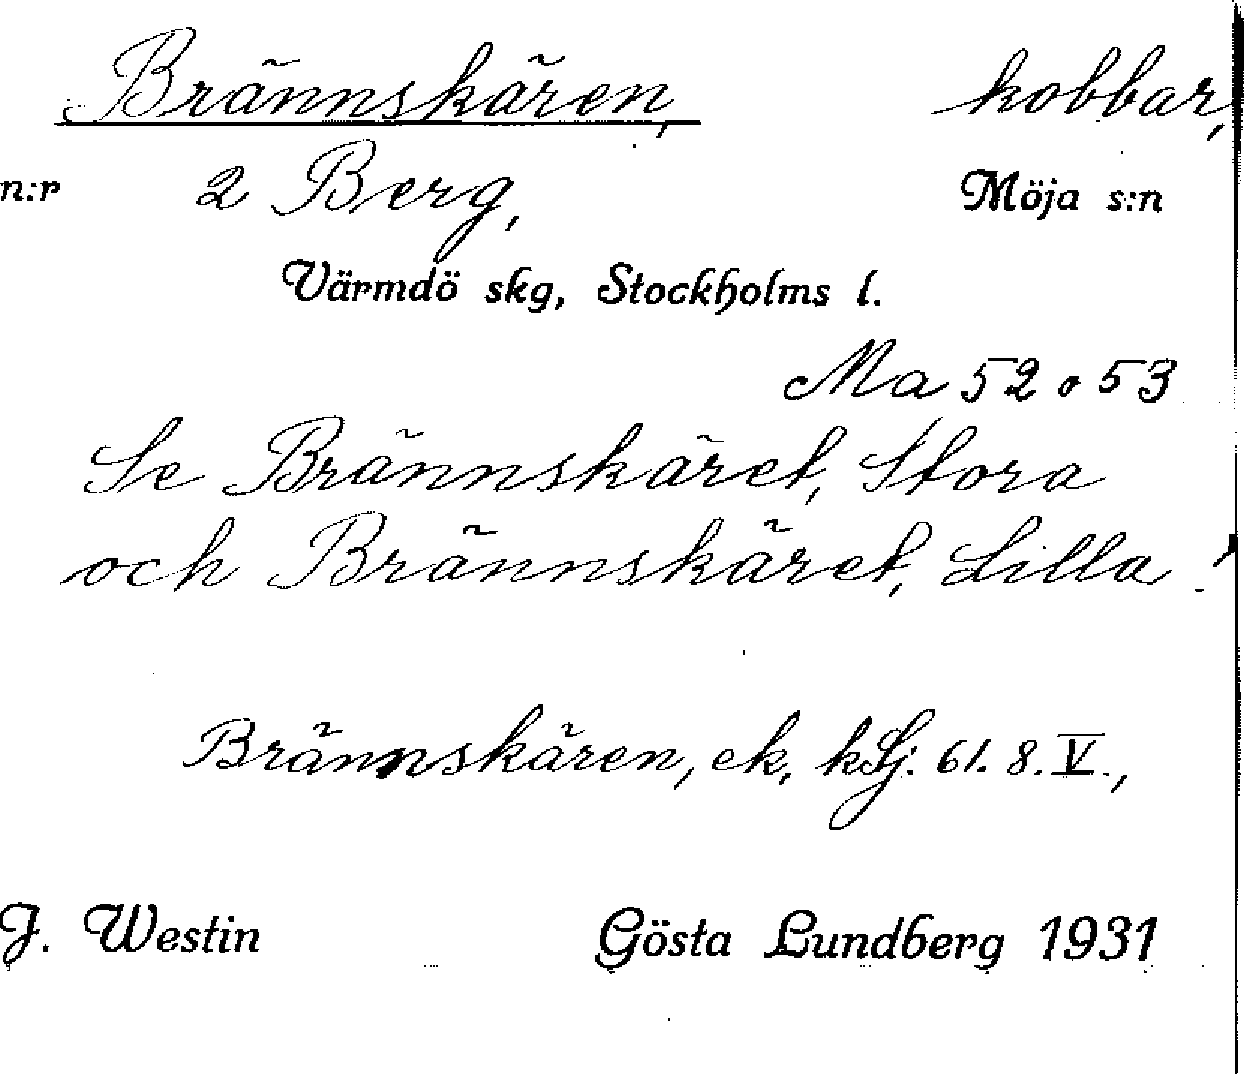 Brännskären, kobbar,
n:r 2 Berg, Möja s:n
Värmdö skg, Stockholms l.
Ma 52 o 53
Se Brännskäret, Stora
och Brännskäret, Lilla
Brännskären, ek, 61. 8. V.,
J. Westin Gösta Lundberg 1931